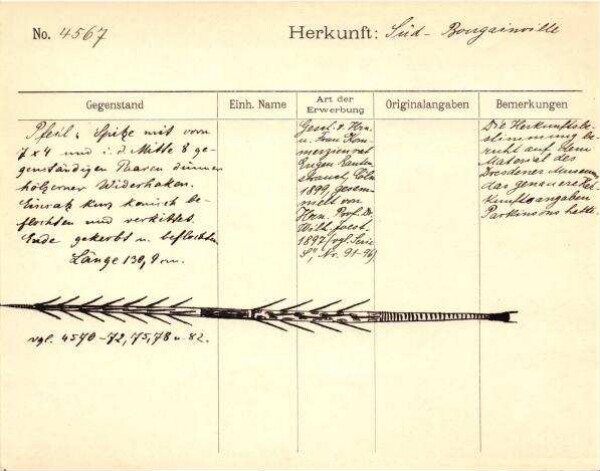 No. 4567
Herkunft: Süd-Bougainville
Gegenstand
Einh. Name
Art der Erwerbung
Originalangaben
Bemerkungen
Pfeil, Spitze mit vorn
7x4 und i. d. Mitte 8 ge-
genständigen Paaren dünner
hölzerner Widerhaken.
Einsatz kurz konisch be-
flochten und verkittet.
Ende gekerbt u. beflochten
Länge 139,9 cm.
Gesch. v. Hrn.
u. Frau Kom-
merzienrat
Eugen Rauten-
strauch, Cöln
1899, gesam-
melt von
Hrn. Prof. Dr.
Wilh. Joest
1897 (vgl. Serie
Nr. 91-96)
Die Herkunftsbe-
stimmung be-
ruht auf dem
Material des
Dresdener Museums,
das genauere Her-
kunftsangaben
Parkinsons hatte.
vgl. 4570-72, 75, 78 u. 82.